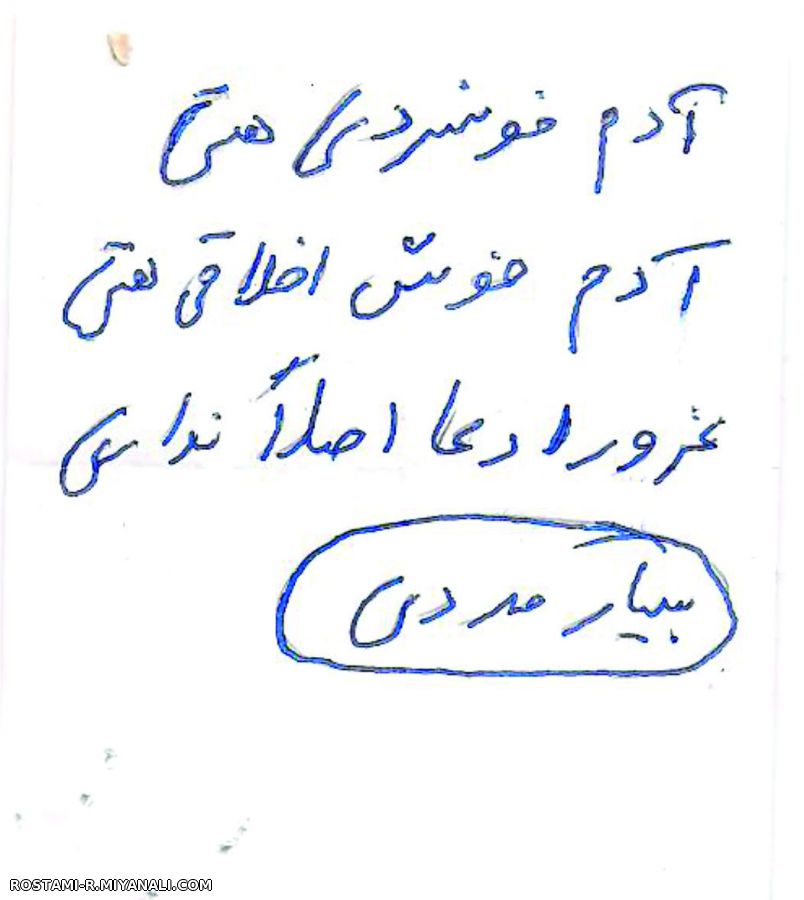 آدم خونسردی هستی
آدم خوش اخلاقی هستی
غرور ادعا اصلاً نداری
بسیار مردی
ROSTAMI-R.MIYANALI.COM